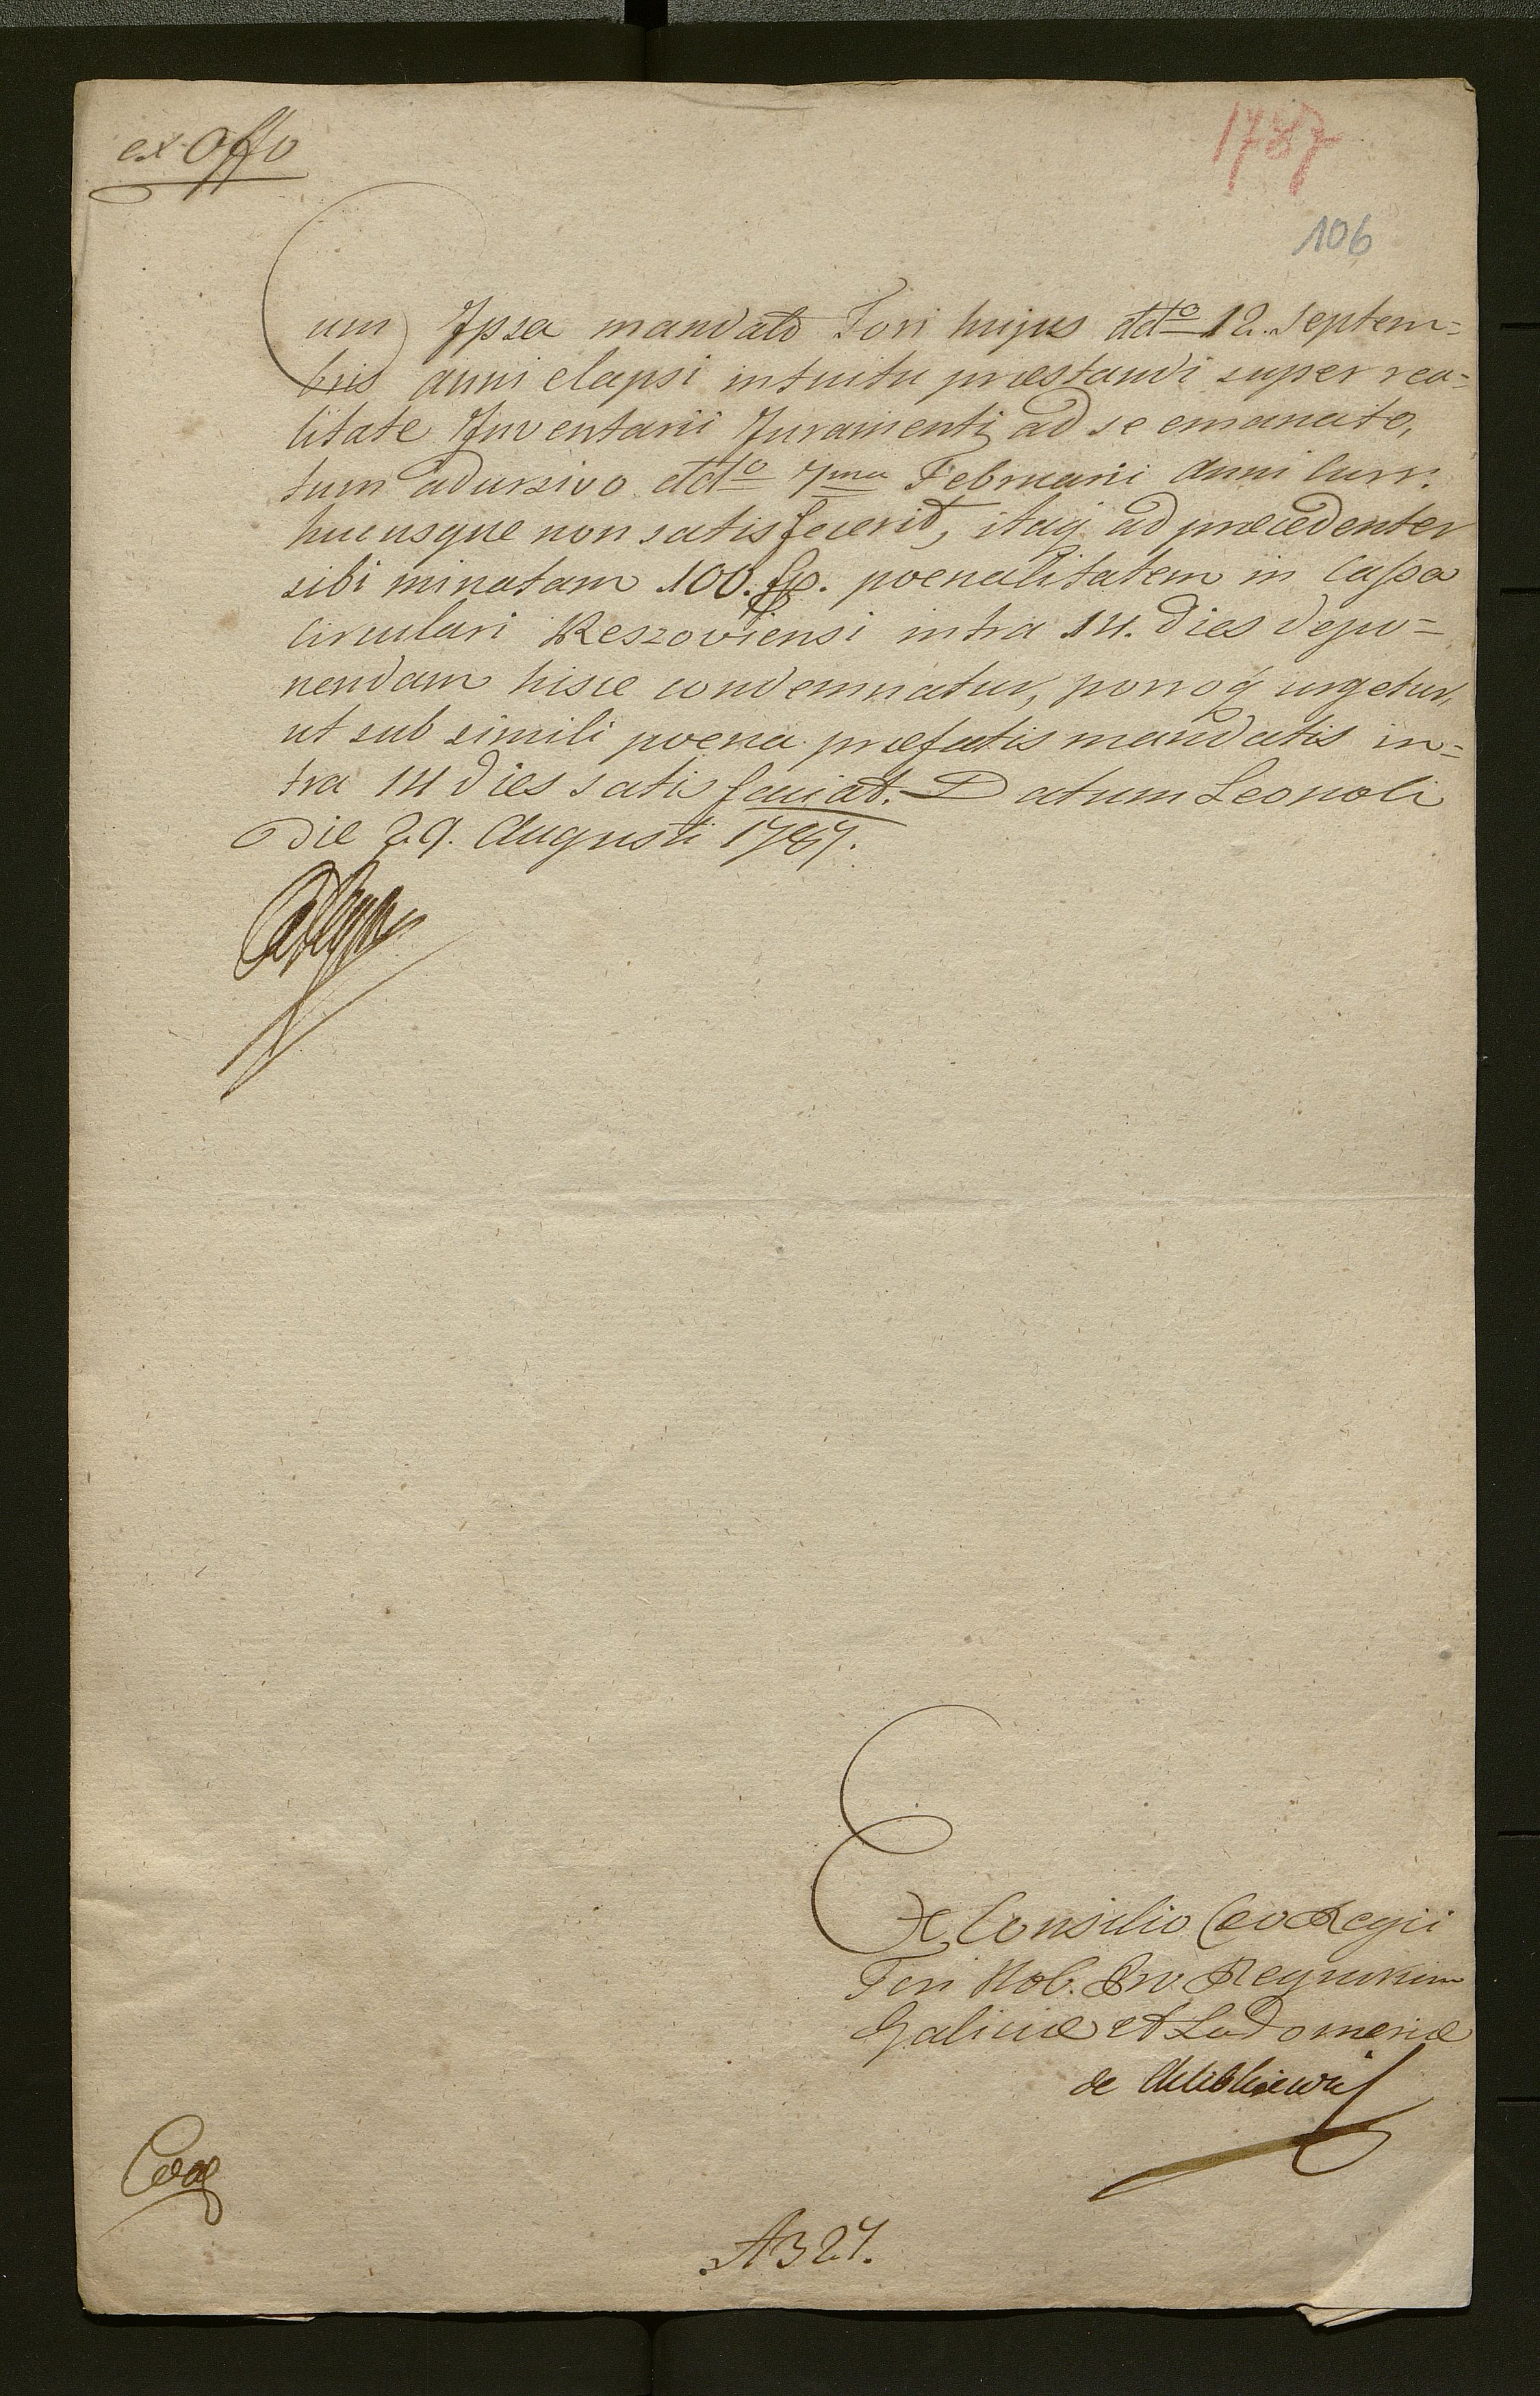 ex Offo
1787
106
Cum Ipsa mandato Fori hujus ddto 12. Septem=
bris anni elapsi intuitu præstandi super rea=
litate Inventarii Juramenti ad se emanato,
tum adursivo ddto 7ma Februarii anni curr.
hucusque non satisfecerit, itaq ad præcedenter
sibi minatam 100. poenalitatem in Cassa
Circulari Reszoviensi intra 14. dies depo=
nendam hisce condemnatur, porroq urgetur,
ut sub simili poena præfatis mandatis in=
tra 14 dies satisfaciat. Datum Leopoli
die 29. Augusti 1787.
Ex Consilio Cæo Regii
Fori Nob. Regnorum
Galiciæ et Lodomeriæ
de
A327.